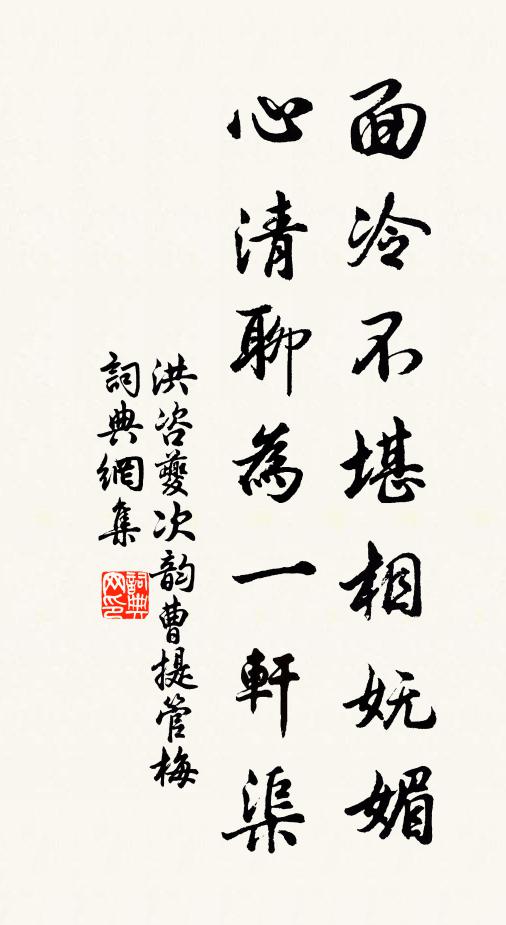 面冷不堪相妩媚
心清聊為一軒渠
洪咨夔次韵曹提管梅
詞典網集
詞典网印